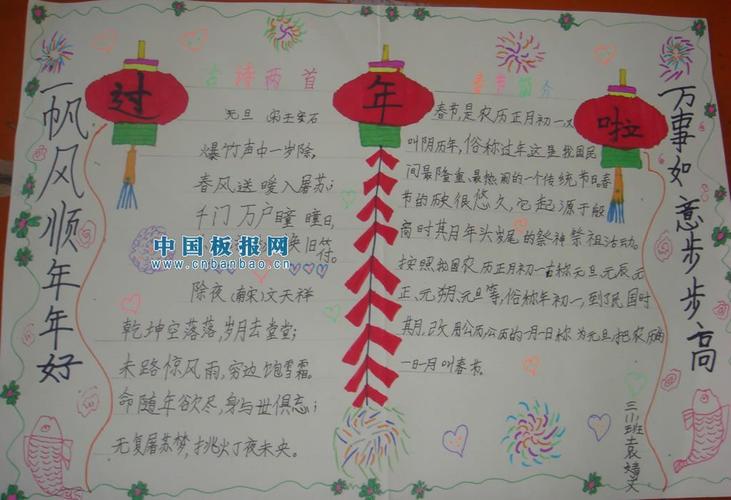 一帆风顺年年好
过
年
啦
万事如意步步高
古诗两首
元旦 宋王安石
爆竹声中一岁除,
春风送暖入屠苏;
千门万户曈曈日,
换旧符。
中国板报网
www.cnbanbao.cn
除夜(南宋)文天祥
乾坤空落落,岁月去堂堂;
末路惊风雨,穷边饱雪霜。
命随年欲尽,身与世俱忘;
无复屠苏梦,挑灯夜未央。
春节简介
春节,是农历正月初一,又
叫阴历年,俗称过年这是我国民
间最隆重、最热闹的一个传统节日。春
节的历史很悠久,它起源于殷
商时其月年头岁尾的祭神祭祖活动。
按照我国农历正月初一古称元旦元辰、元
正、元朔、元旦等,俗称年初一,到了民国时
期,改用公历公历的一月一日称为元旦,把农历的
一日一月叫春节。
三小班袁婧文